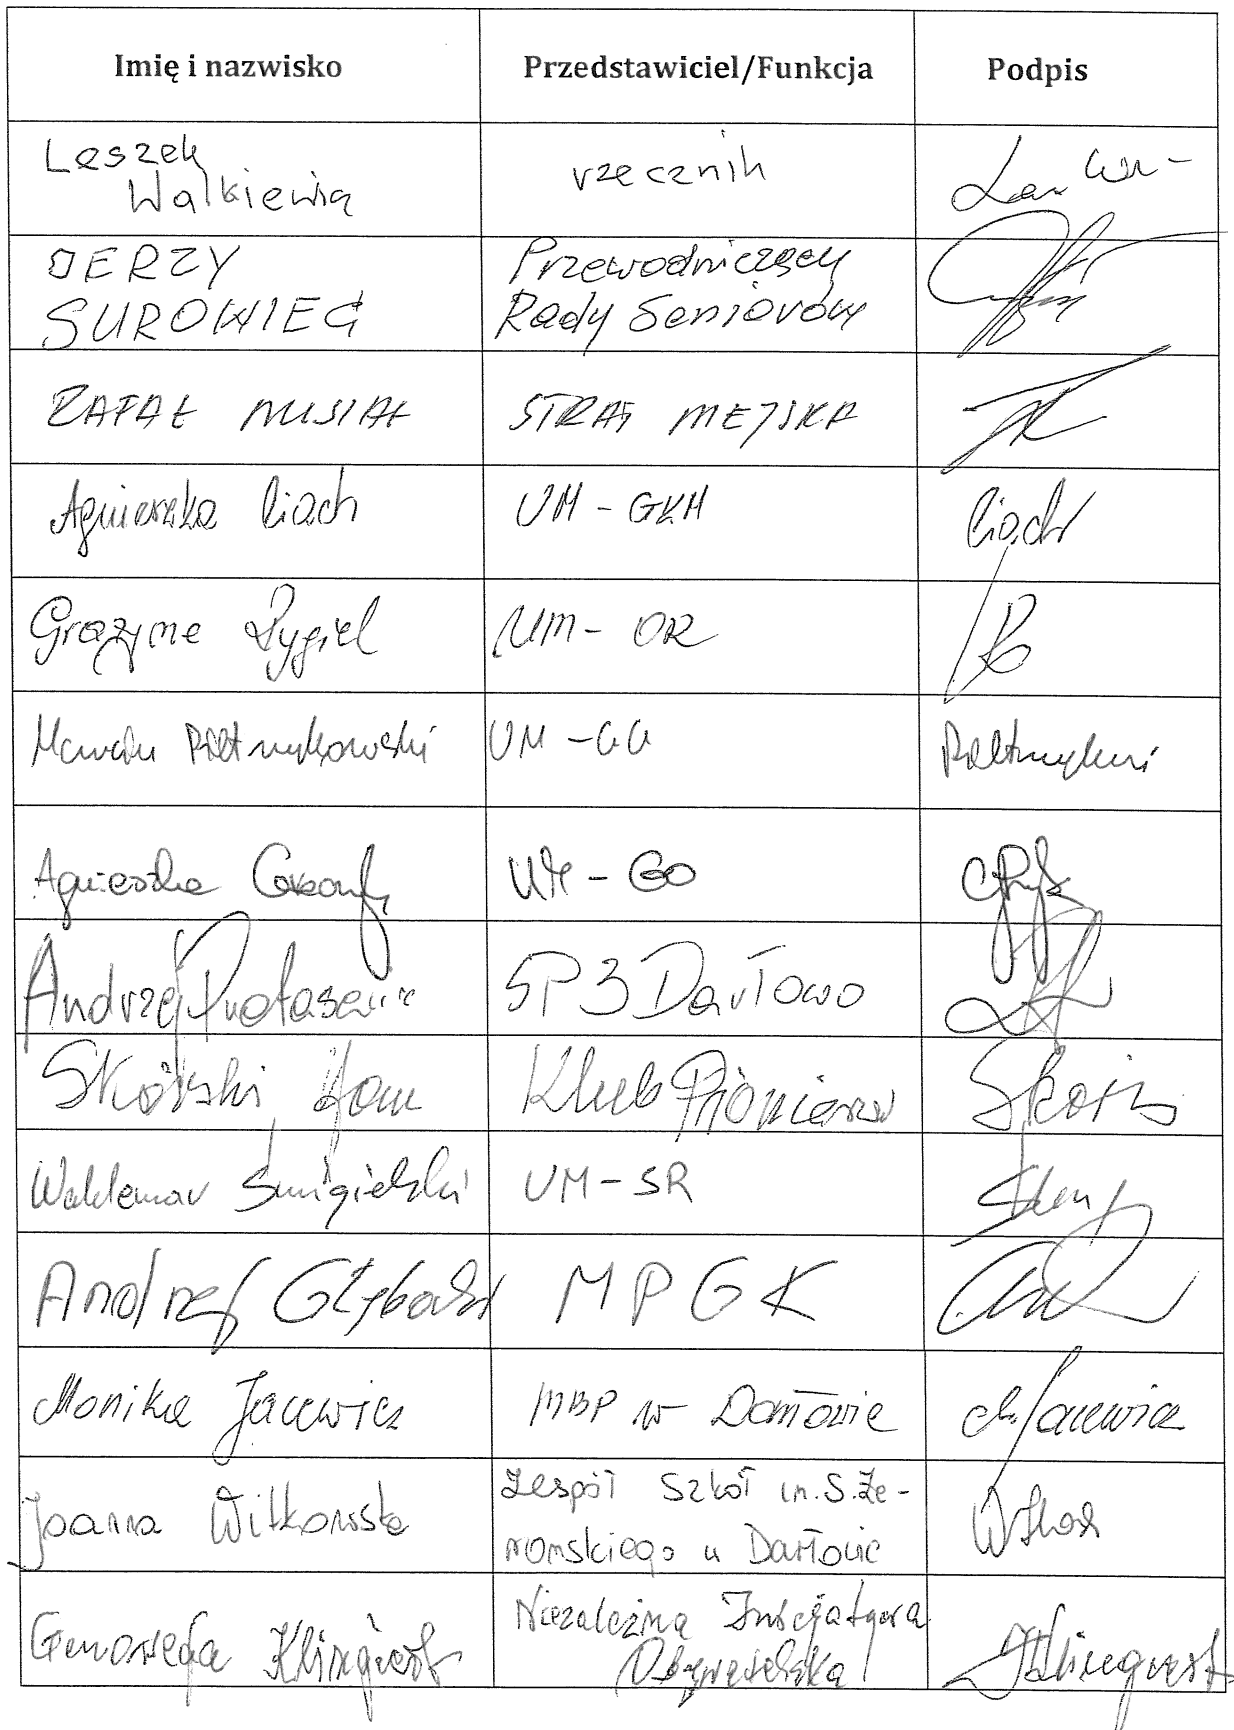 Imię i nazwisko Przedstawiciel/Funkcja Podpis
Leszek
Walkiewicz
rzecznik
JERZY
SUROWIEC
Przewodniczący
Rady Seniorów
RAFAŁ MUSIAŁ STRAŻ MIEJSKA
Agnieszka Ciach UM - GKM Ciach
Grażyna Rygiel UM - OR
UM - GG
Agnieszka UM - GO
Andrzej Protasewicz SP 3 Darłowo
Skórski Klub Pionierów
Waldemar Śmigielski UM - SR
Andrzej Głębocki MPGK
Monika Jacewicz MBP w Darłowie M. Jacewicz
Joanna Witkowska
Zespół Szkół im. S. Że-
romskiego w Darłowie
Genowefa Klingiert
Niezależna Inicjatywa
Obywatelska